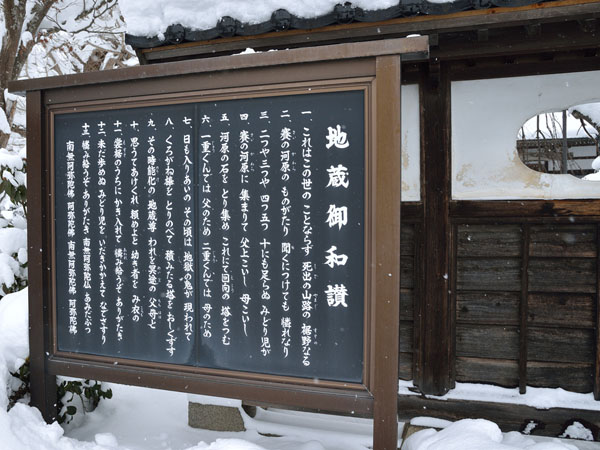 地蔵御和讃
一、これはこの世の ことならず 死出の山路の 裾野なる
二、賽の河原の ものがたり 聞くにつけても 憐れなり
三、二つや三つや 四つ五つ 十にも足らぬ みどり児が
四、賽の河原に 集まりて 父上こいし 母こいし
五、河原の石を とり集め これにて回向の 塔をつむ
六、一重くんでは 父のため 二重くんでは 母のため
七、日も入りあいの その頃は 地獄の鬼が 現われて
八、くろがね棒を とりのべて 積みたる塔を おしくずす
九、その時能化の 地蔵尊 われを冥途の 父母と
十、思うてあけくれ 頼めよと 幼き者を み衣の
十一、裳裾のうちに かき入れて 憐み給うぞ ありがたき
十二、未だ歩めぬ みどり児を いだきかかえて なでさすり
十三、憐み給うぞ ありがたき 南無阿弥陀仏 ああみだぶつ
南無阿弥陀佛 阿弥陀佛 南無阿弥陀佛 阿弥陀佛